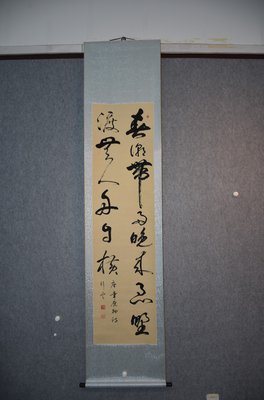 春潮帶雨晚来急野
渡無人舟自橫
唐韋應物詩